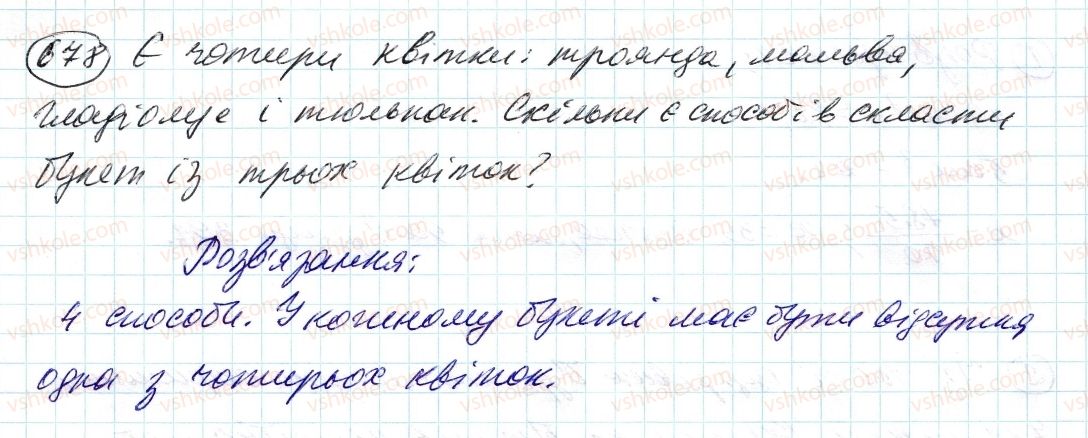 678 Є чотири квітки: троянда, мальва,
гладіолус і тюльпан. Скільки є способів скласти
букет із трьох квіток?
Розв'язання:
4 способи. У кожному букеті має бути відсутня
одна з чотирьох квіток.